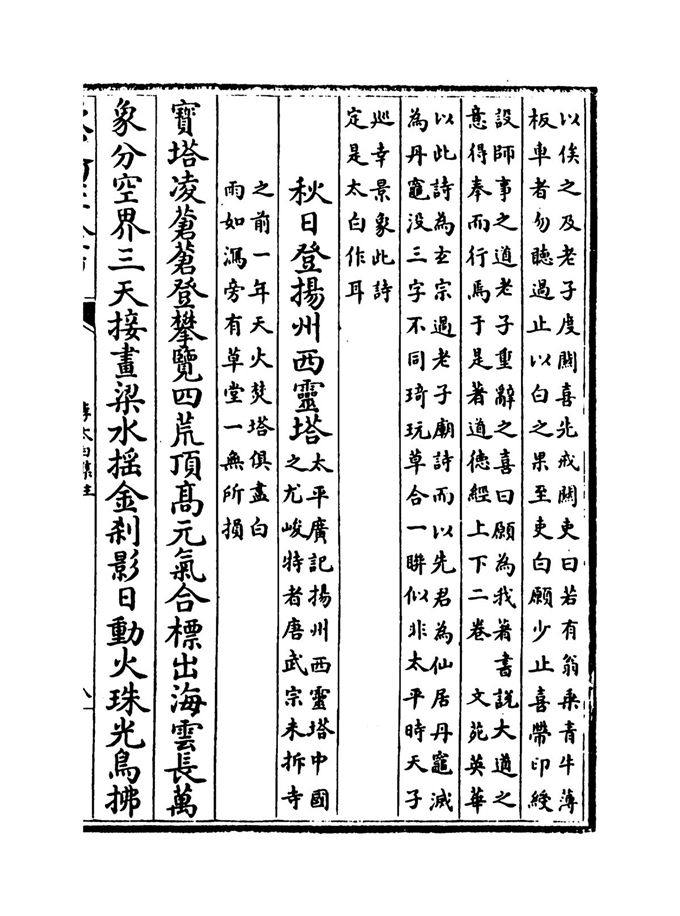 以俟之及老子度關喜先戒關吏曰若有翁乘青牛薄
板車者勿聽過止以白之果至吏白願少止喜帶印綬
設師事之道老子重辭之喜曰願為我著書說大道之
意得奉而行焉于是著道德經上下二卷 文苑英華
以此詩為玄宗過老子廟詩而以先君為仙居丹竈滅
為丹竈没三字不同琦玩草合一聨似非太平時天子
巡幸景象此詩
定是太白作耳
秋日登揚州西靈塔
太平廣記揚州西靈塔中國
之尤峻特者唐武宗未拆寺
之前一年天火焚塔俱盡白
雨如瀉旁有草堂一無所損
寶塔凌蒼蒼登攀覽四荒頂髙元氣合標出海雲長萬
象分空界三天接畫梁水摇金刹影日動火珠光鳥拂
李太白集注